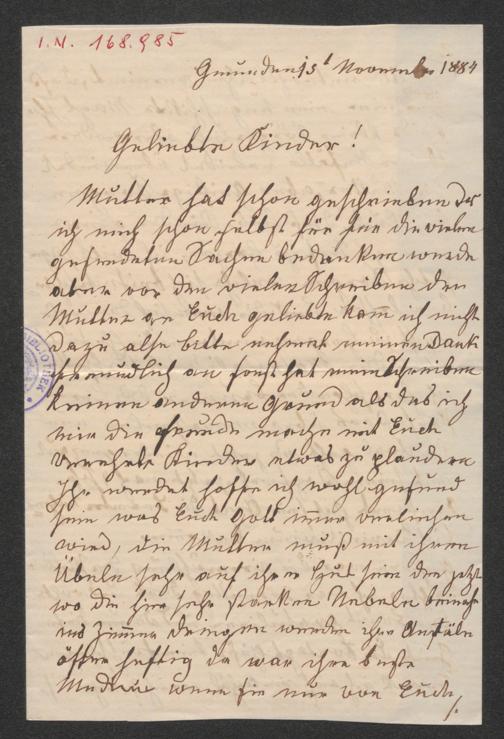 I.N. 168.985
Gmunden 15t November 1884
Geliebte Kinder!
Mutter hat schon geschrieben das
ich mich schon selbst für die vielen
gesendeten Sachen bedanken werde
aber vor den vielen Schreiben der
Mutter an Euch geliebte kam̅ ich nicht
dazu also bitte nehmet meinen Dank
freundlich an sonst hat mein Schreiben
keinen anderen Grund als das ich
mir die Freude mache mit Euch
Verehrte Kinder etwas zu plaudern
Ihr werdet hoffe ich wohl gesund
sein was Euch Gott immer verleihen
wird, die Mutter muß mit ihren
Übeln sehr auf ihrer Hut sein den jetzt
wo die hier sehr starken Nebeln beinahe
ins Zimmer dringen werden ihre Anfäle
öfter heftig da war ihre beste
Medizin wenn sie nur von Euch
BIBLIOTHEK